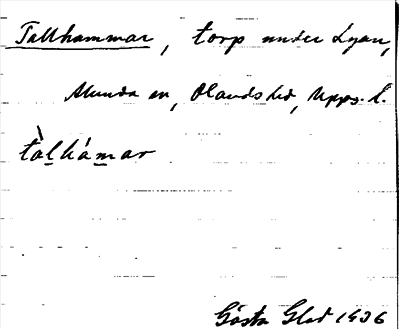 Tallhammar, torp under Lyan,
Alunda sn, Olands hd, Upps. l.
tàlhámar
Gösta Glad 1936